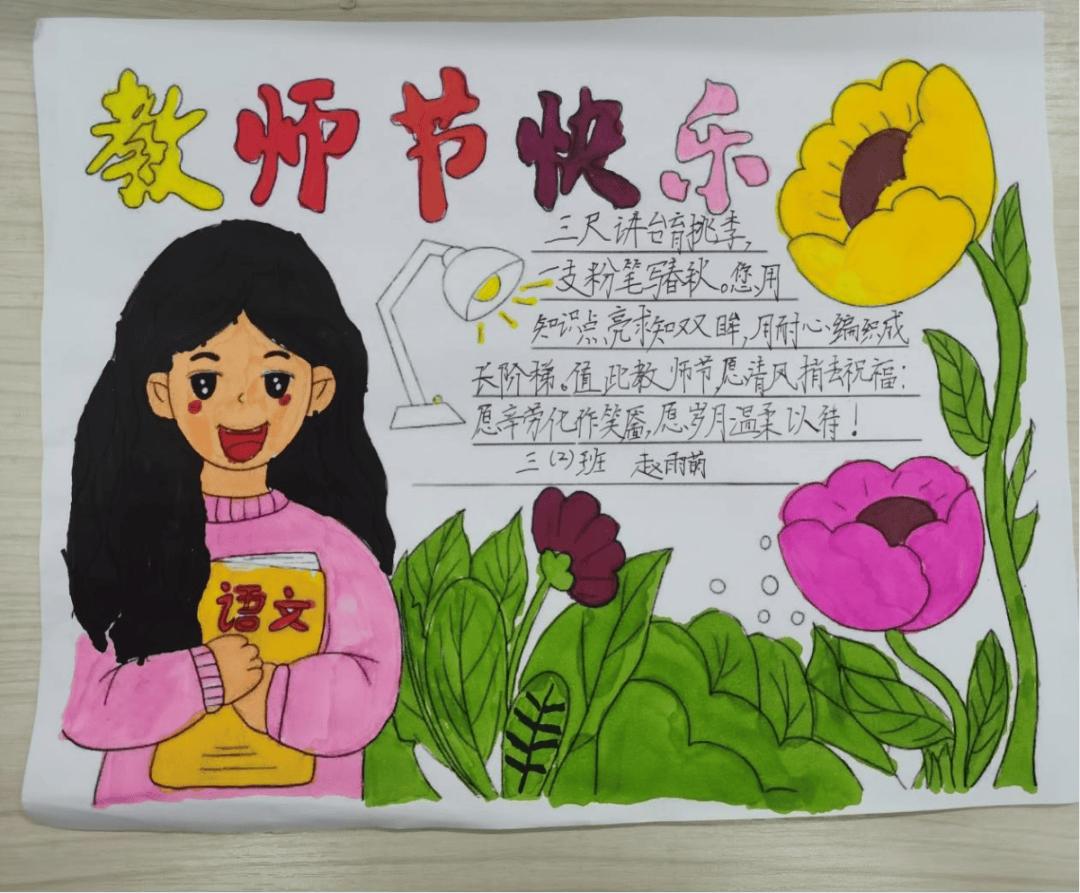 教师节快乐
三尺讲台育桃李,
一支粉笔写春秋。您用
知识点亮求知双眸,用耐心编织成
长阶梯。值此教师节愿清风捎去祝福:
愿辛劳化作笑靥,愿岁月温柔以待!
三(2)班 赵雨萌
语文